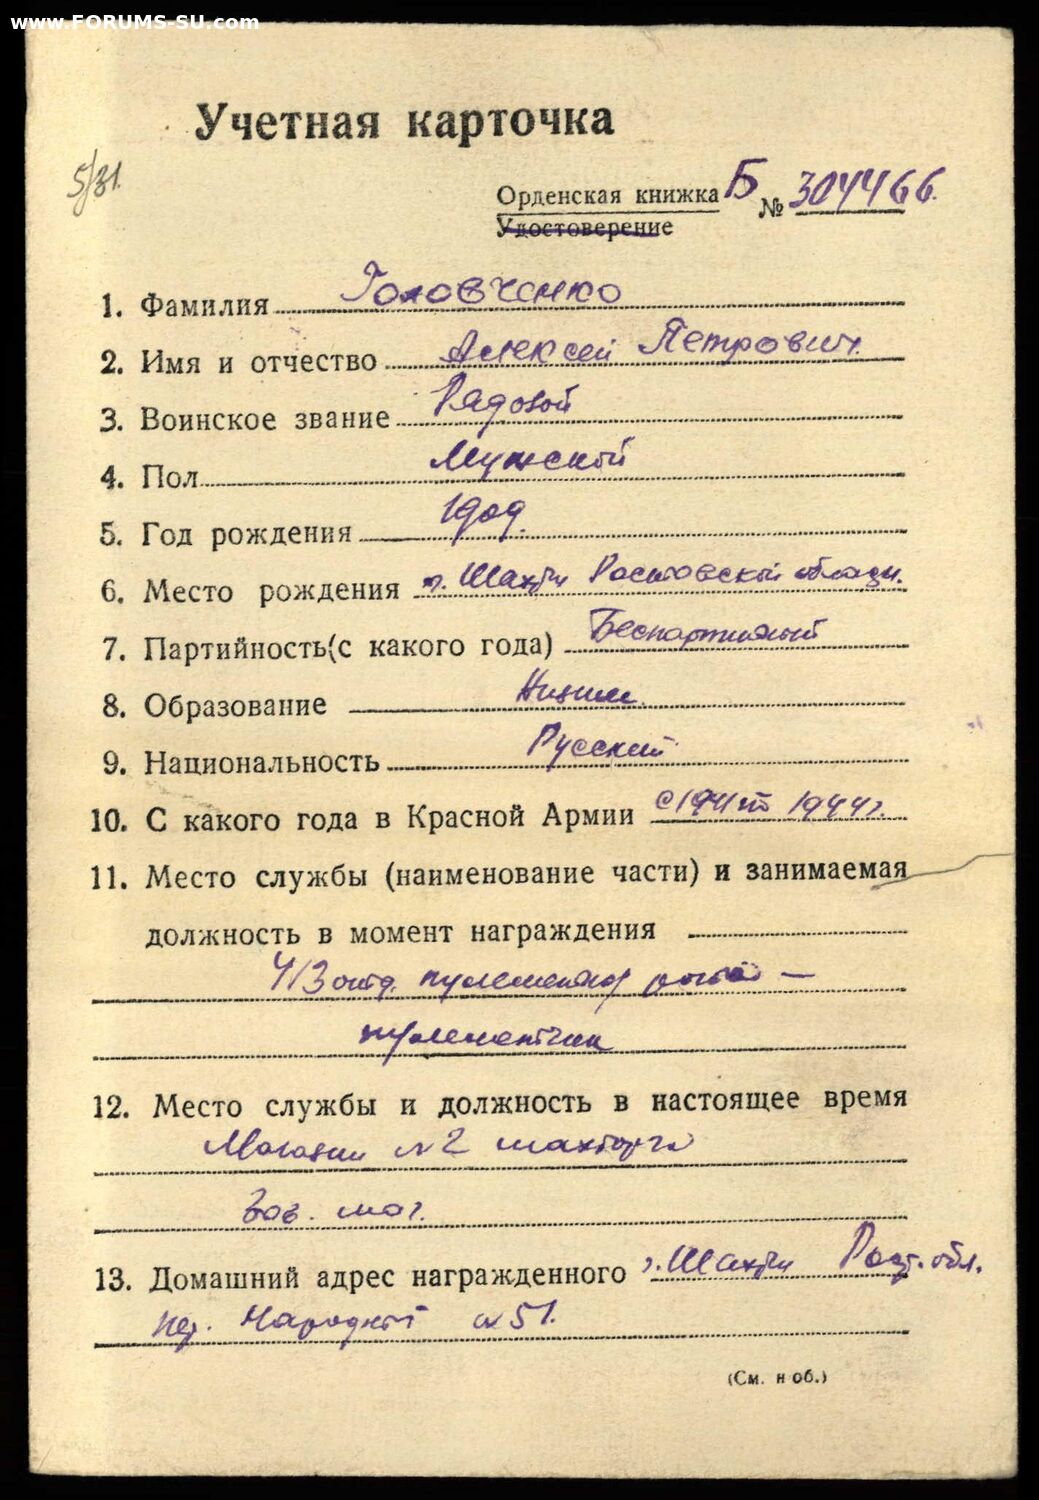 www.FORUMS-SU.com
Учетная карточка
5/31.
Орденская книжка Б № 304466.
Удостоверение
1. Фамилия Головченко
2. Имя и отчество Алексей Петрович.
3. Воинское звание Рядовой
4. Пол Мужской
5. Год рождения 1909.
6. Место рождения г. Шахты Ростовской области.
7. Партийность(с какого года) Беспартийный
8. Образование Низшее.
9. Национальность Русский
10. С какого года в Красной Армии с 1941 по 1944г.
11. Место службы (наименование части) и занимаемая
должность в момент награждения
413 отд. пулеметная рота —
пулеметчик
12. Место службы и должность в настоящее время
Магазин №2 шахторга
Зав. маг.
13. Домашний адрес награжденного г. Шахты Рост. обл.
пер. Народный №51.
(См. н об.)